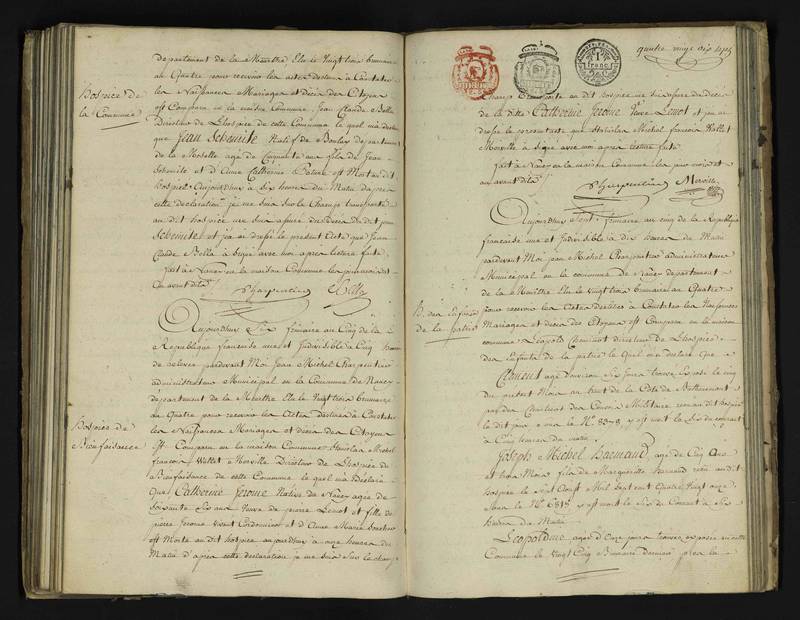 Hospice de
la Commune
département de la Meurthe Elu le Vingt trois brumaire
au Quatre pour recevoir les actes destinés à Constater
les Naissances Mariages et décès des Citoyens
est Comparu en la maison Commune Jean Claude Bella
Directeur de l'hospice de cette Commune le quel m'a déclaré
que Jean Schemite Natif de Boulay département
de la Moselle agé de Cinquante ans fils de Jean
Schemite et d'Anne Catherine est Mort au dit
hospice Aujourd'huy à Six heures du Matin d'après
cette déclaration je me suis sur le Champ transporté
au dit hospice me suis assuré du décès du dit Jean
Schemite et j'en ai dressé le présent Acte que Jean
Claude Bella à signé avec moi après lecture faite
fait à Nancy en la maison Commune les jour mois et
an avant dits
Charpentier Bella
Hospice de
Bienfaisance
Aujourd'huy Six frimaire au Cinq de la
République française une et Indivisible à Cinq heures
de relevée pardevant Moi Jean Michel Charpentier
administrateur Municipal en la Commune de Nancy
département de la Meurthe Elu le Vingt trois brumaire
au Quatre pour recevoir les Actes destinés à Constater
les Naissances Mariages et décès des Citoyens
est Comparu en la maison Commune Stanislas Michel
françois Wallet Merville Directeur de l'hospice de
Bienfaisance de cette Commune le quel m'a déclaré
Que Catherine Jerome Native de Nancy agée de
Soixante Six ans Veuve de pierre Lenot et fille de
pierre Jerome vivant Cordonnier et d'Anne Marie
est Morte au dit hospice aujourd'huy à onze heures du
Matin d'après cette déclaration je me suis sur le champ
quatre vingt dix sept
1 franc
Champ transporté au dit hospice me suis assuré du décès
de la ditte Catherine Jerome Veuve Lenot et j'en ai
dressé le présent acte que Stanislas Michel françois Wallet
Merville à signé avec moi après lecture faite
fait à Nancy en la maison Commune les jour mois et
an avant dits
Charpentier Merville
Aujourd'huy Sept frimaire au cinq de la République
française une et Indivisible à dix heures du Matin
pardevant Moi Jean Michel Charpentier administrateur
Municipal en la commune de Nancy département
de la Meurthe Elu le Vingt trois brumaire au Quatre
H. des Enfans
de la patrie
pour recevoir les Actes destinés à Constater les Naissances
Mariages et décès des Citoyens est Comparu en la maison
commune Léopold directeur de l'hospice
des Enfants de la patrie le Quel m'a déclaré que
Clément agé d'environ Six jours trouvé Exposé le cinq
du présent Mois au haut de la Côte de
par des Conducteurs des Convois Militaires
le dit jour sous le N.° 8378 y est mort le Six du courant
à Cinq heures du matin
Joseph Michel agé de Cinq Ans
et trois Mois fils de Marguerite reçu au dit
hospice le Sept Aoust Mil Sept cent Quatre Vingt onze
Sous le N.° y est mort le Six du Courant à Six
heures du Matin
Léopoldine agée d'Onze jours trouvée exposée en cette
Commune le Vingt Cinq Brumaire dernier près la